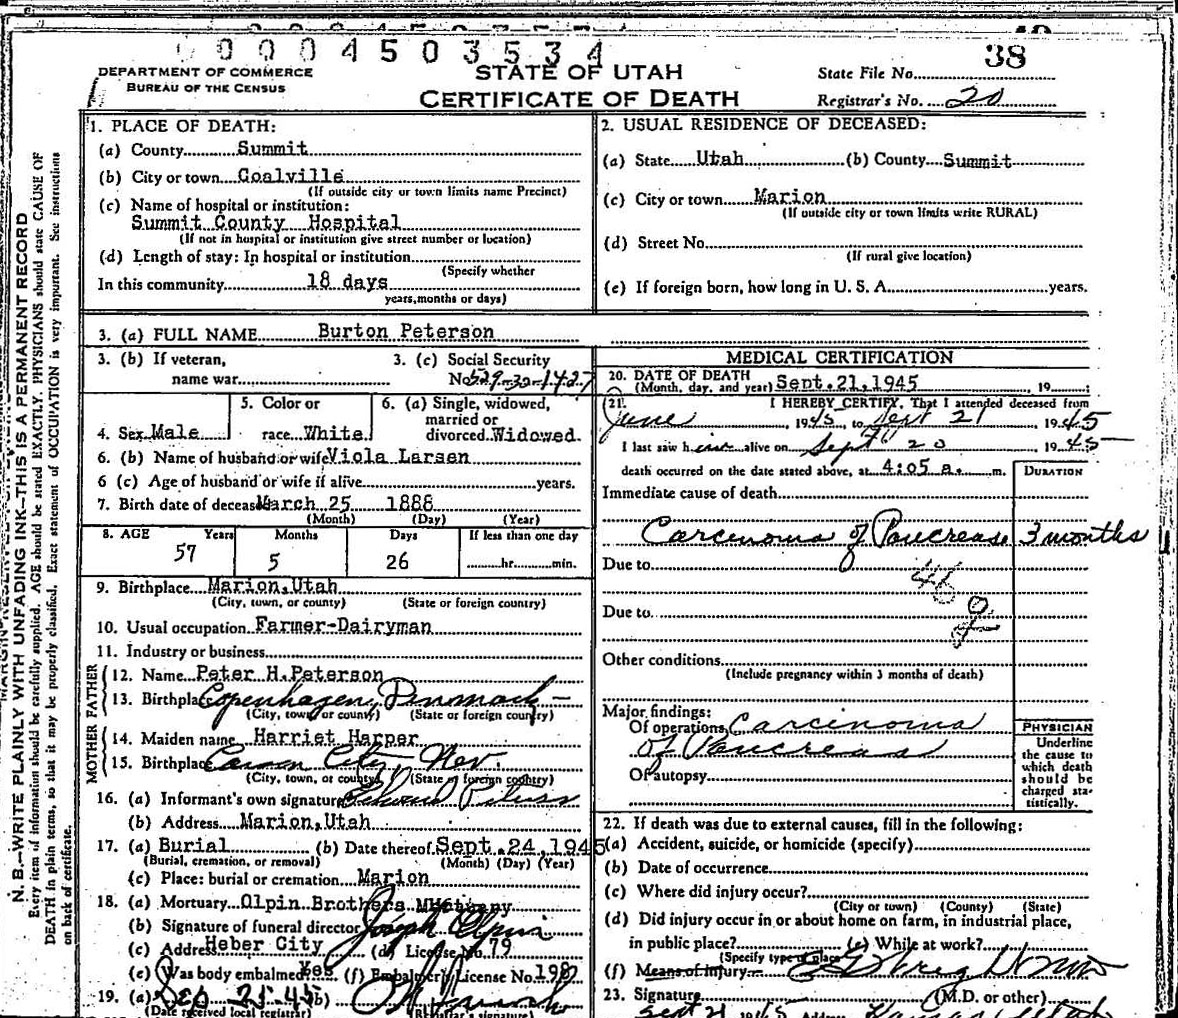 0 0 0 0 4 5 0 3 5 3 4
38
DEPARTMENT OF COMMERCE
BUREAU OF THE CENSUS
STATE OF UTAH
CERTIFICATE OF DEATH
State File No.
Registrar's No. 20
N. B.—WRITE PLAINLY WITH UNFADING INK—THIS IS A PERMANENT RECORD
Every item of information should be carefully supplied. AGE should be stated EXACTLY. PHYSICIANS should state CAUSE OF
DEATH in plain terms, so that it may be properly classified. Exact statement of OCCUPATION is very important. See instructions
on back of certificate.
1. PLACE OF DEATH:
(a) County Summit
(b) City or town Coalville
(If outside city or town limits name Precinct)
(c) Name of hospital or institution:
Summit County Hospital
(If not in hospital or institution give street number or location)
(d) Length of stay: In hospital or institution
(Specify whether
In this community 18 days
years, months or days)
2. USUAL RESIDENCE OF DECEASED:
(a) State Utah (b) County Summit
(c) City or town Marion
(If outside city or town limits write RURAL)
(d) Street No.
(If rural give location)
(e) If foreign born, how long in U. S. A. years.
3. (a) FULL NAME Burton Peterson
3. (b) If veteran, name war
3. (c) Social Security No. 529-32-1427
4. Sex Male
5. Color or race White
6. (a) Single, widowed, married or divorced Widowed
6. (b) Name of husband or wife Viola Larsen
6 (c) Age of husband or wife if alive years.
7. Birth date of deceased March 25 1888
(Month) (Day) (Year)
8. AGE Years Months Days If less than one day
57 5 26 hr. min.
9. Birthplace Marion, Utah
(City, town, or county) (State or foreign country)
10. Usual occupation Farmer-Dairyman
11. Industry or business
FATHER
12. Name Peter H. Peterson
13. Birthplace Copenhagen, Denmark
(City, town or county) (State or foreign country)
MOTHER
14. Maiden name Harriet Harper
15. Birthplace Carson City, Nev.
(City, town, or county) (State or foreign country)
16. (a) Informant's own signature
(b) Address Marion, Utah
17. (a) Burial (b) Date thereof Sept. 24, 1945
(Burial, cremation, or removal) (Month) (Day) (Year)
(c) Place: burial or cremation Marion
18. (a) Mortuary Olpin Brothers
(b) Signature of funeral director Joseph Olpin
(c) Address Heber City (d) License No. 79
(e) Was body embalmed yes (f) Embalmer's License No. 198
19. (a) Sep 25-45 (b)
(Date received local registrar) (Registrar's signature)
MEDICAL CERTIFICATION
20. DATE OF DEATH
(Month, day, and year) Sept. 21, 1945 , 19 ;
21. I HEREBY CERTIFY, That I attended deceased from
June , 1945, to Sept 21 , 1945
I last saw him alive on Sept 20 , 1945
death occurred on the date stated above, at 4:05 a. m.
DURATION
Immediate cause of death
Carcinoma of Pancrease 3 months
Due to
46
g
Due to
Other conditions
(Include pregnancy within 3 months of death)
Major findings:
Of operations Carcinoma
of Pancreas
Of autopsy
PHYSICIAN
Underline
the cause to
which death
should be
charged sta-
tistically.
22. If death was due to external causes, fill in the following:
(a) Accident, suicide, or homicide (specify)
(b) Date of occurrence
(c) Where did injury occur?
(City or town) (County) (State)
(d) Did injury occur in or about home on farm, in industrial place,
in public place? (e) While at work?
(Specify type of place)
(f) Means of injury
23. Signature (M.D. or other)
Sept 21 1945 Address Kamas Utah